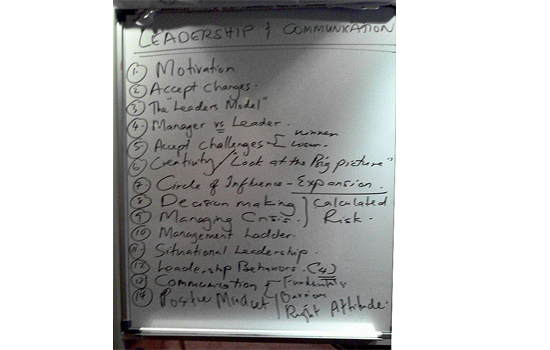 LEADERSHIP & COMMUNICATION
1. Motivation
2 Accept Changes.
3 The "Leaders Model"
4. Manager vs Leader.
5 Accept Challenges - winner
6 Creativity / Look at the Big picture"
7 Circle of Influence - Expansion.
8 Decision making } Calculated
9 Managing Crisis. } Risk.
10 Management Ladder.
11. Situational Leadership.
12 Leadership Behaviors. (4)
13 Communication
14 Positive Mindset / Right Attitude.